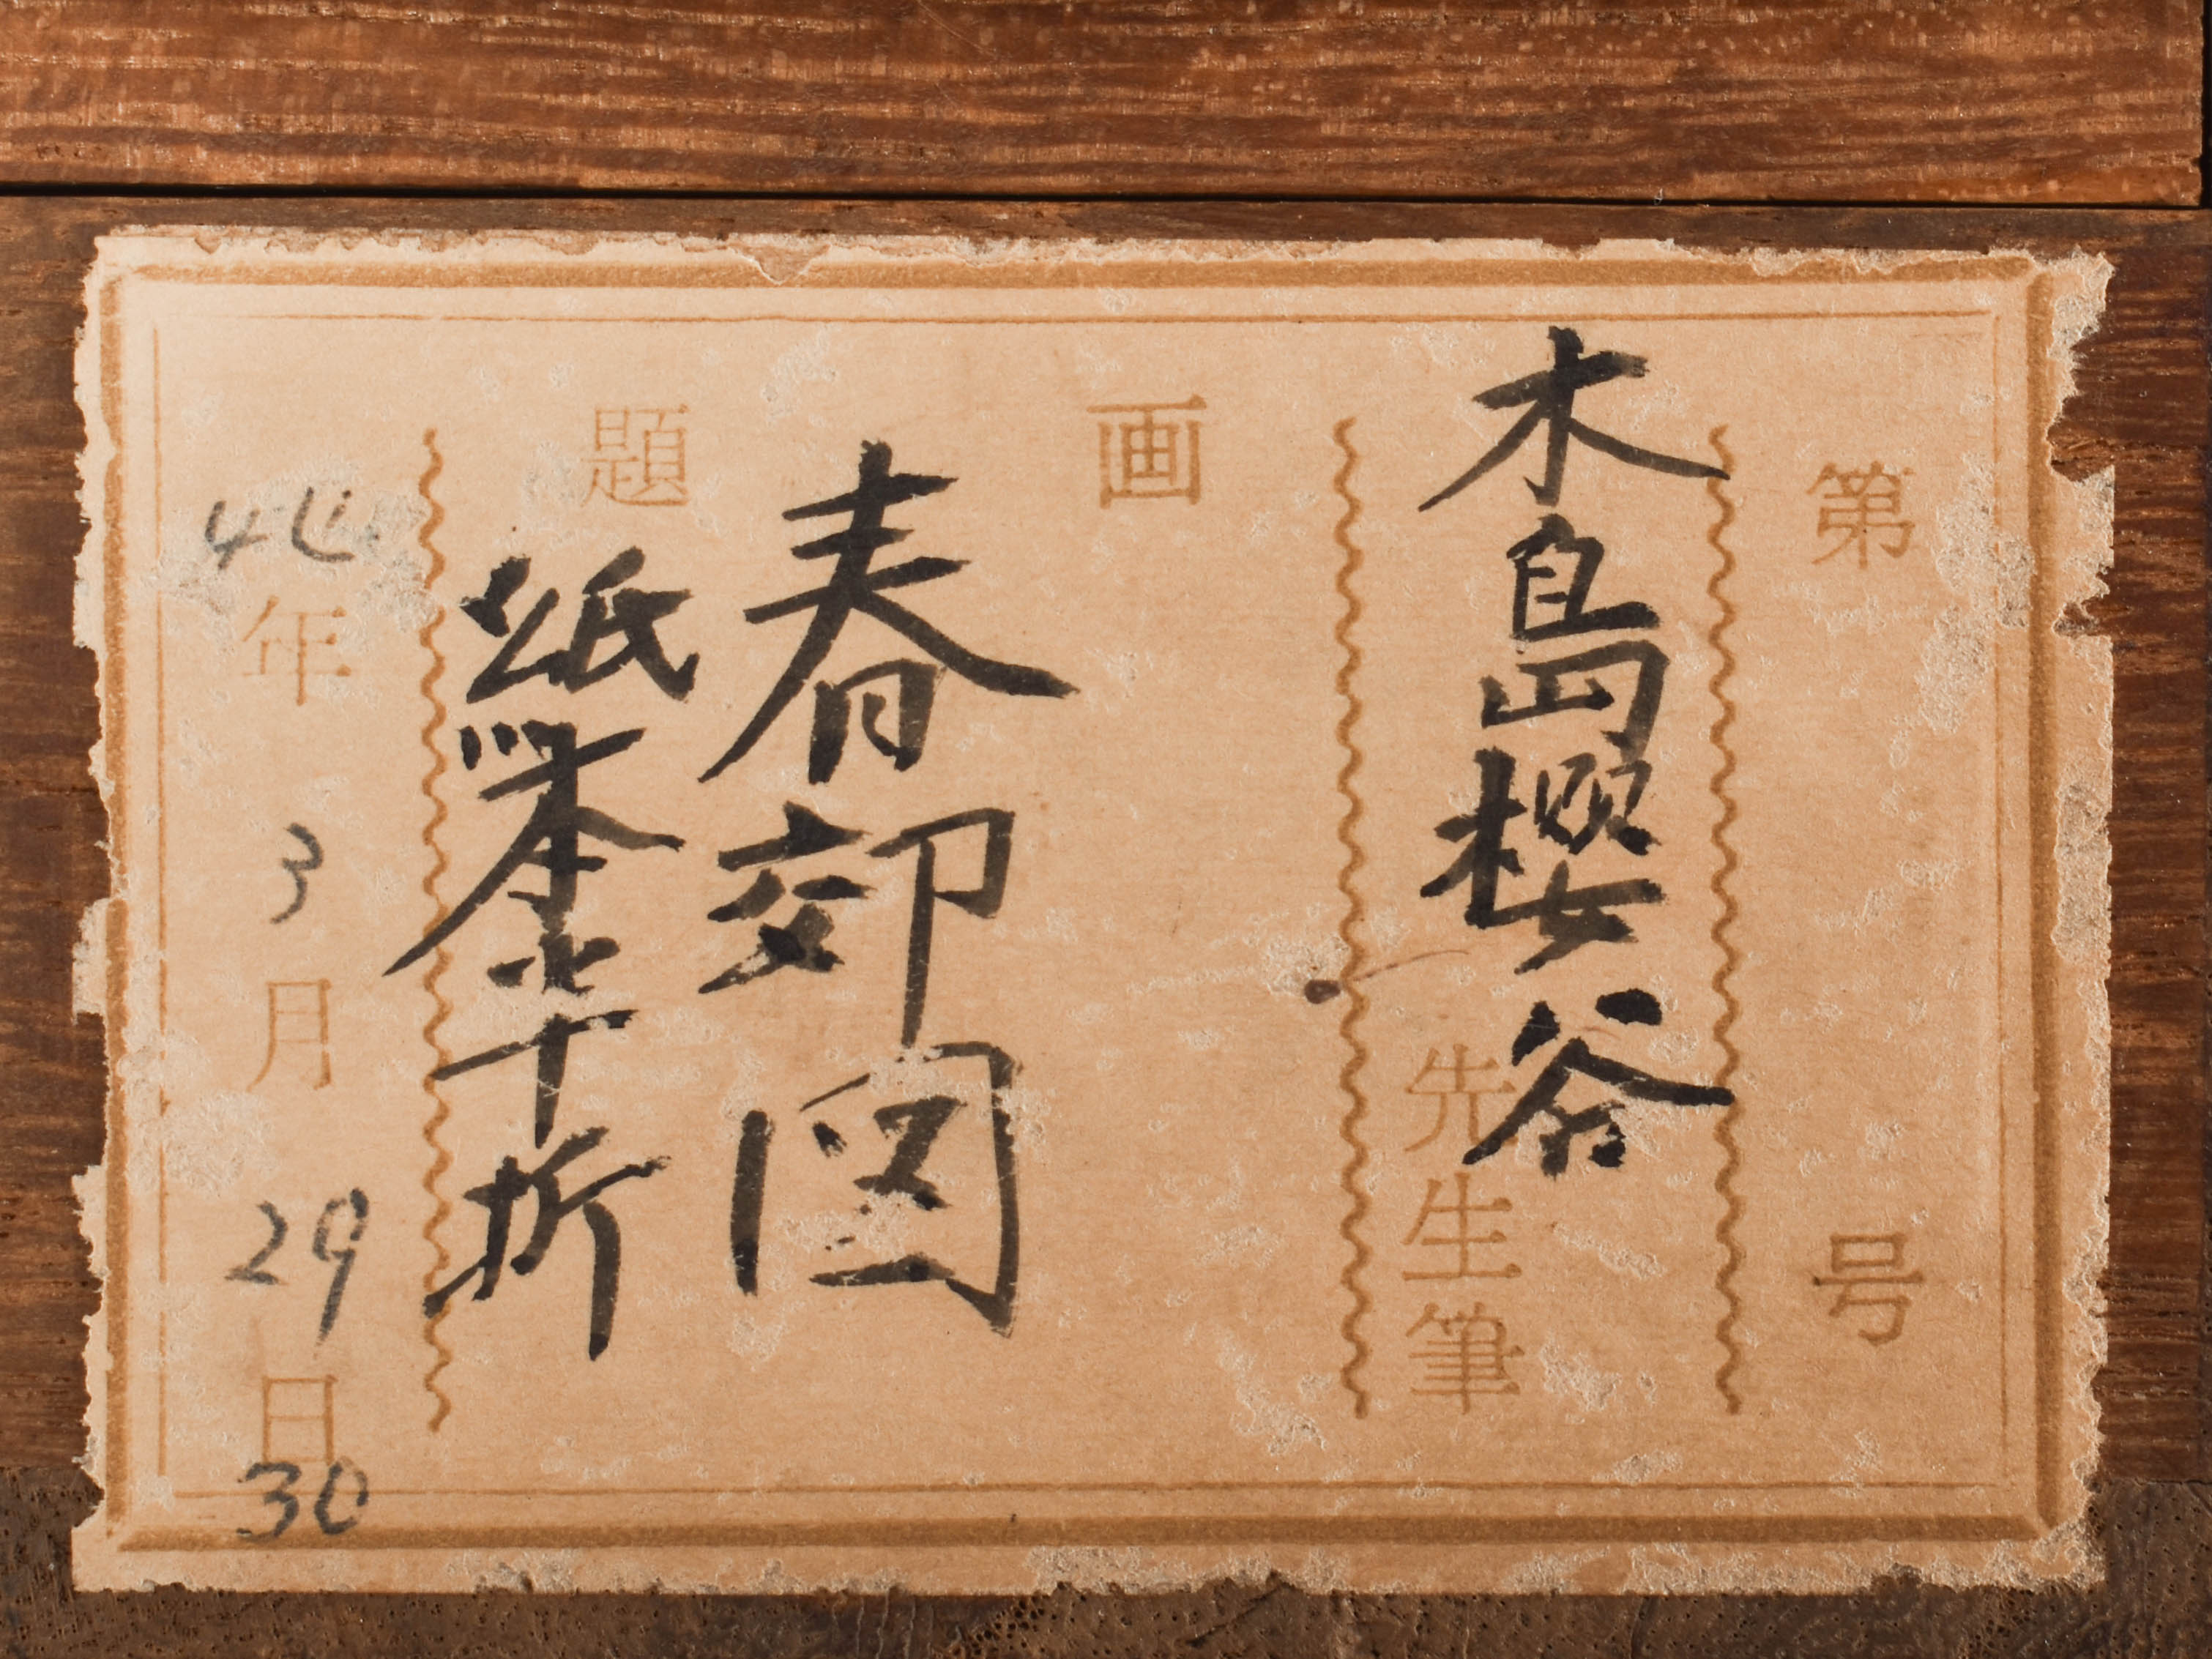 第 号
木島櫻谷 先生筆
画 題
春郊図
紙本半折
年 3 月 29 日
30